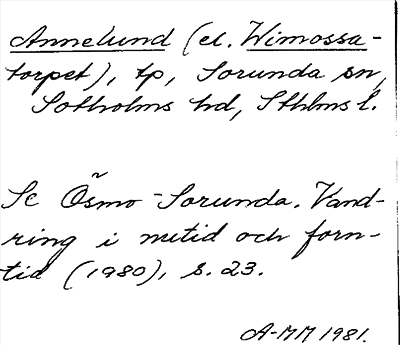 Annelund (el. Wimossa-
torpet), tp, Sorunda sn,
Sotholms hd, Sthlms l.
Se Ösmo-Sorunda. Vand-
ring i nutid och forn-
tid (1980), s. 23.
A-MM 1981.